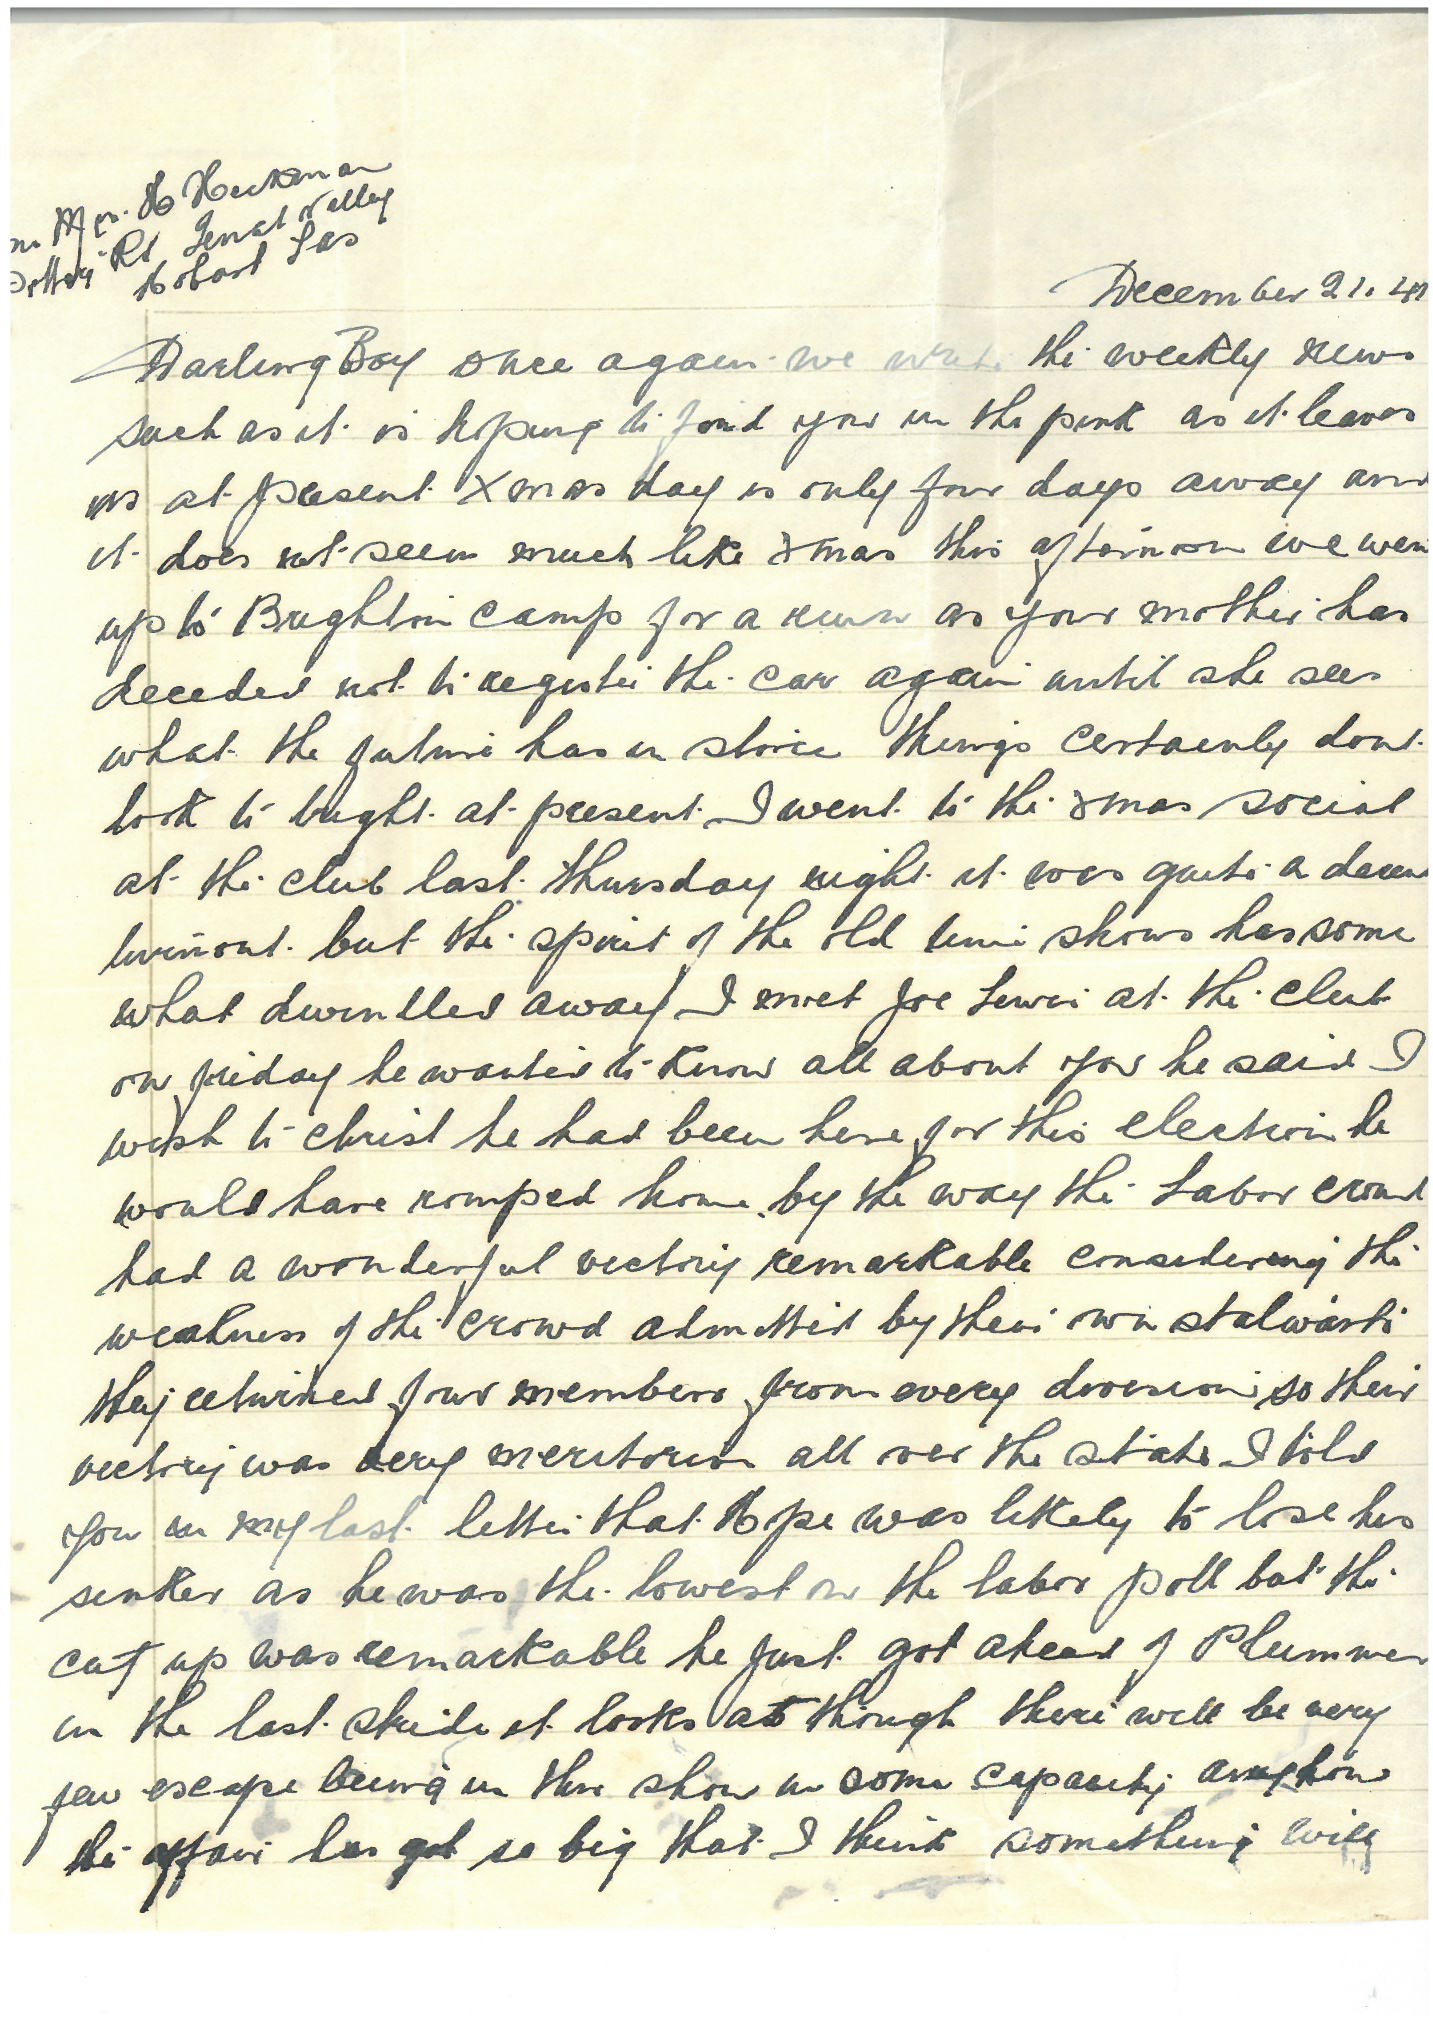 Mrs. H Heckman
Rd Lenah Valley
Hobart Tas
December 21. 41
Darling Boy once again we write the weekly news
such as it is hoping to find you in the pink as it leaves
us at present Xmas day is only four days away and
it does not seem much like xmas this afternoon we wen
up to Brighton camp for a run as your mother has
deceded not to register the car again until she sees
what the future has in store things certainly dont
look to bright at present I went to the xmas social
at the club last thursday night it was quite a decen
turnout but the spirit of the old time shows has some
what dwindled away I met Joe Lewis at the club
on friday he wanted to know all about you he said I
wish to christ he had been here for this election he
would have romped home by the way the Labor crowd
had a wonderful victory remarkable considering the
weakness of the crowd admitted by their own stalwarts
they returned four members from every division so their
victory was very meritorious all over the state I told
you in my last letter that Hope was likely to lose his
sinker as he was the lowest on the labor poll but the
cut up was remarkable he just got ahead of Plummer
in the last stride it looks as though there will be very
few escape being in this show in some capacity anyhow
the affair has got so big that I think something will